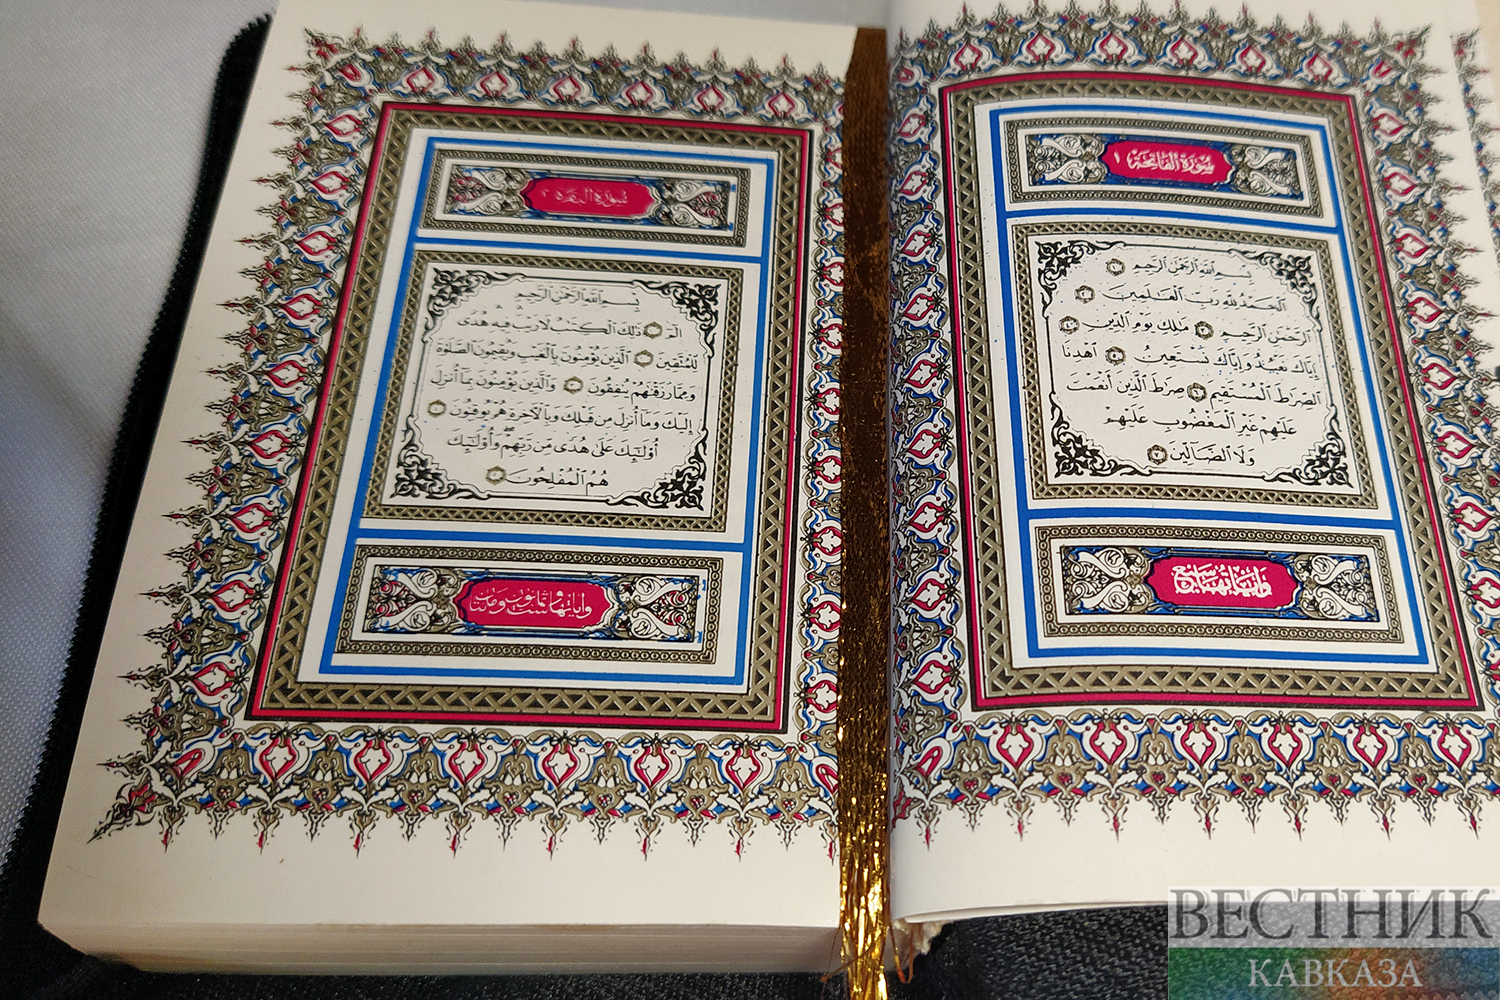 سُورَةُ الْفَاتِحَةِ ١
بِسْمِ اللَّهِ الرَّحْمَٰنِ الرَّحِيمِ ١
الْحَمْدُ لِلَّهِ رَبِّ الْعَالَمِينَ ٢
الرَّحْمَٰنِ الرَّحِيمِ ٣ مَالِكِ يَوْمِ الدِّينِ ٤
إِيَّاكَ نَعْبُدُ وَإِيَّاكَ نَسْتَعِينُ ٥ اهْدِنَا
الصِّرَاطَ الْمُسْتَقِيمَ ٦ صِرَاطَ الَّذِينَ أَنْعَمْتَ
عَلَيْهِمْ غَيْرِ الْمَغْضُوبِ عَلَيْهِمْ
وَلَا الضَّالِّينَ ٧
وآياتها سبع
سُورَةُ الْبَقَرَةِ ٢
بِسْمِ اللَّهِ الرَّحْمَٰنِ الرَّحِيمِ
الٓمٓ ١ ذَٰلِكَ الْكِتَٰبُ لَا رَيْبَ فِيهِ هُدًى
لِّلْمُتَّقِينَ ٢ الَّذِينَ يُؤْمِنُونَ بِالْغَيْبِ وَيُقِيمُونَ الصَّلَوٰةَ
وَمِمَّا رَزَقْنَٰهُمْ يُنفِقُونَ ٣ وَالَّذِينَ يُؤْمِنُونَ بِمَا أُنزِلَ
إِلَيْكَ وَمَا أُنزِلَ مِن قَبْلِكَ وَبِالْآخِرَةِ هُمْ يُوقِنُونَ ٤
أُوْلَٰئِكَ عَلَىٰ هُدًى مِّن رَّبِّهِمْ وَأُوْلَٰئِكَ
هُمُ الْمُفْلِحُونَ ٥
وآياتها ست وثمانون ومائتان
ВЕСТНИК
КАВКАЗА